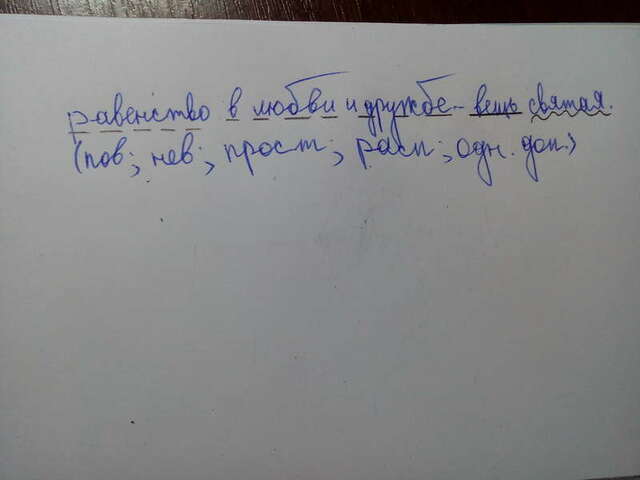 равенство в любви и дружбе - вещь святая.
(пов; нев; прост; расп; одн. доп.)